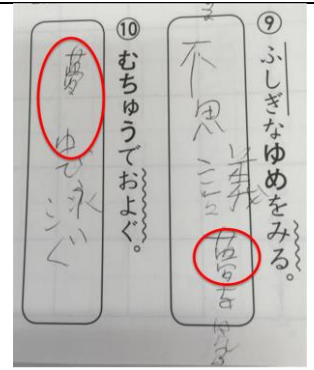 ⑨ふしぎなゆめをみる。
不思議
⑩むちゅうでおよぐ。
夢中で泳ぐ